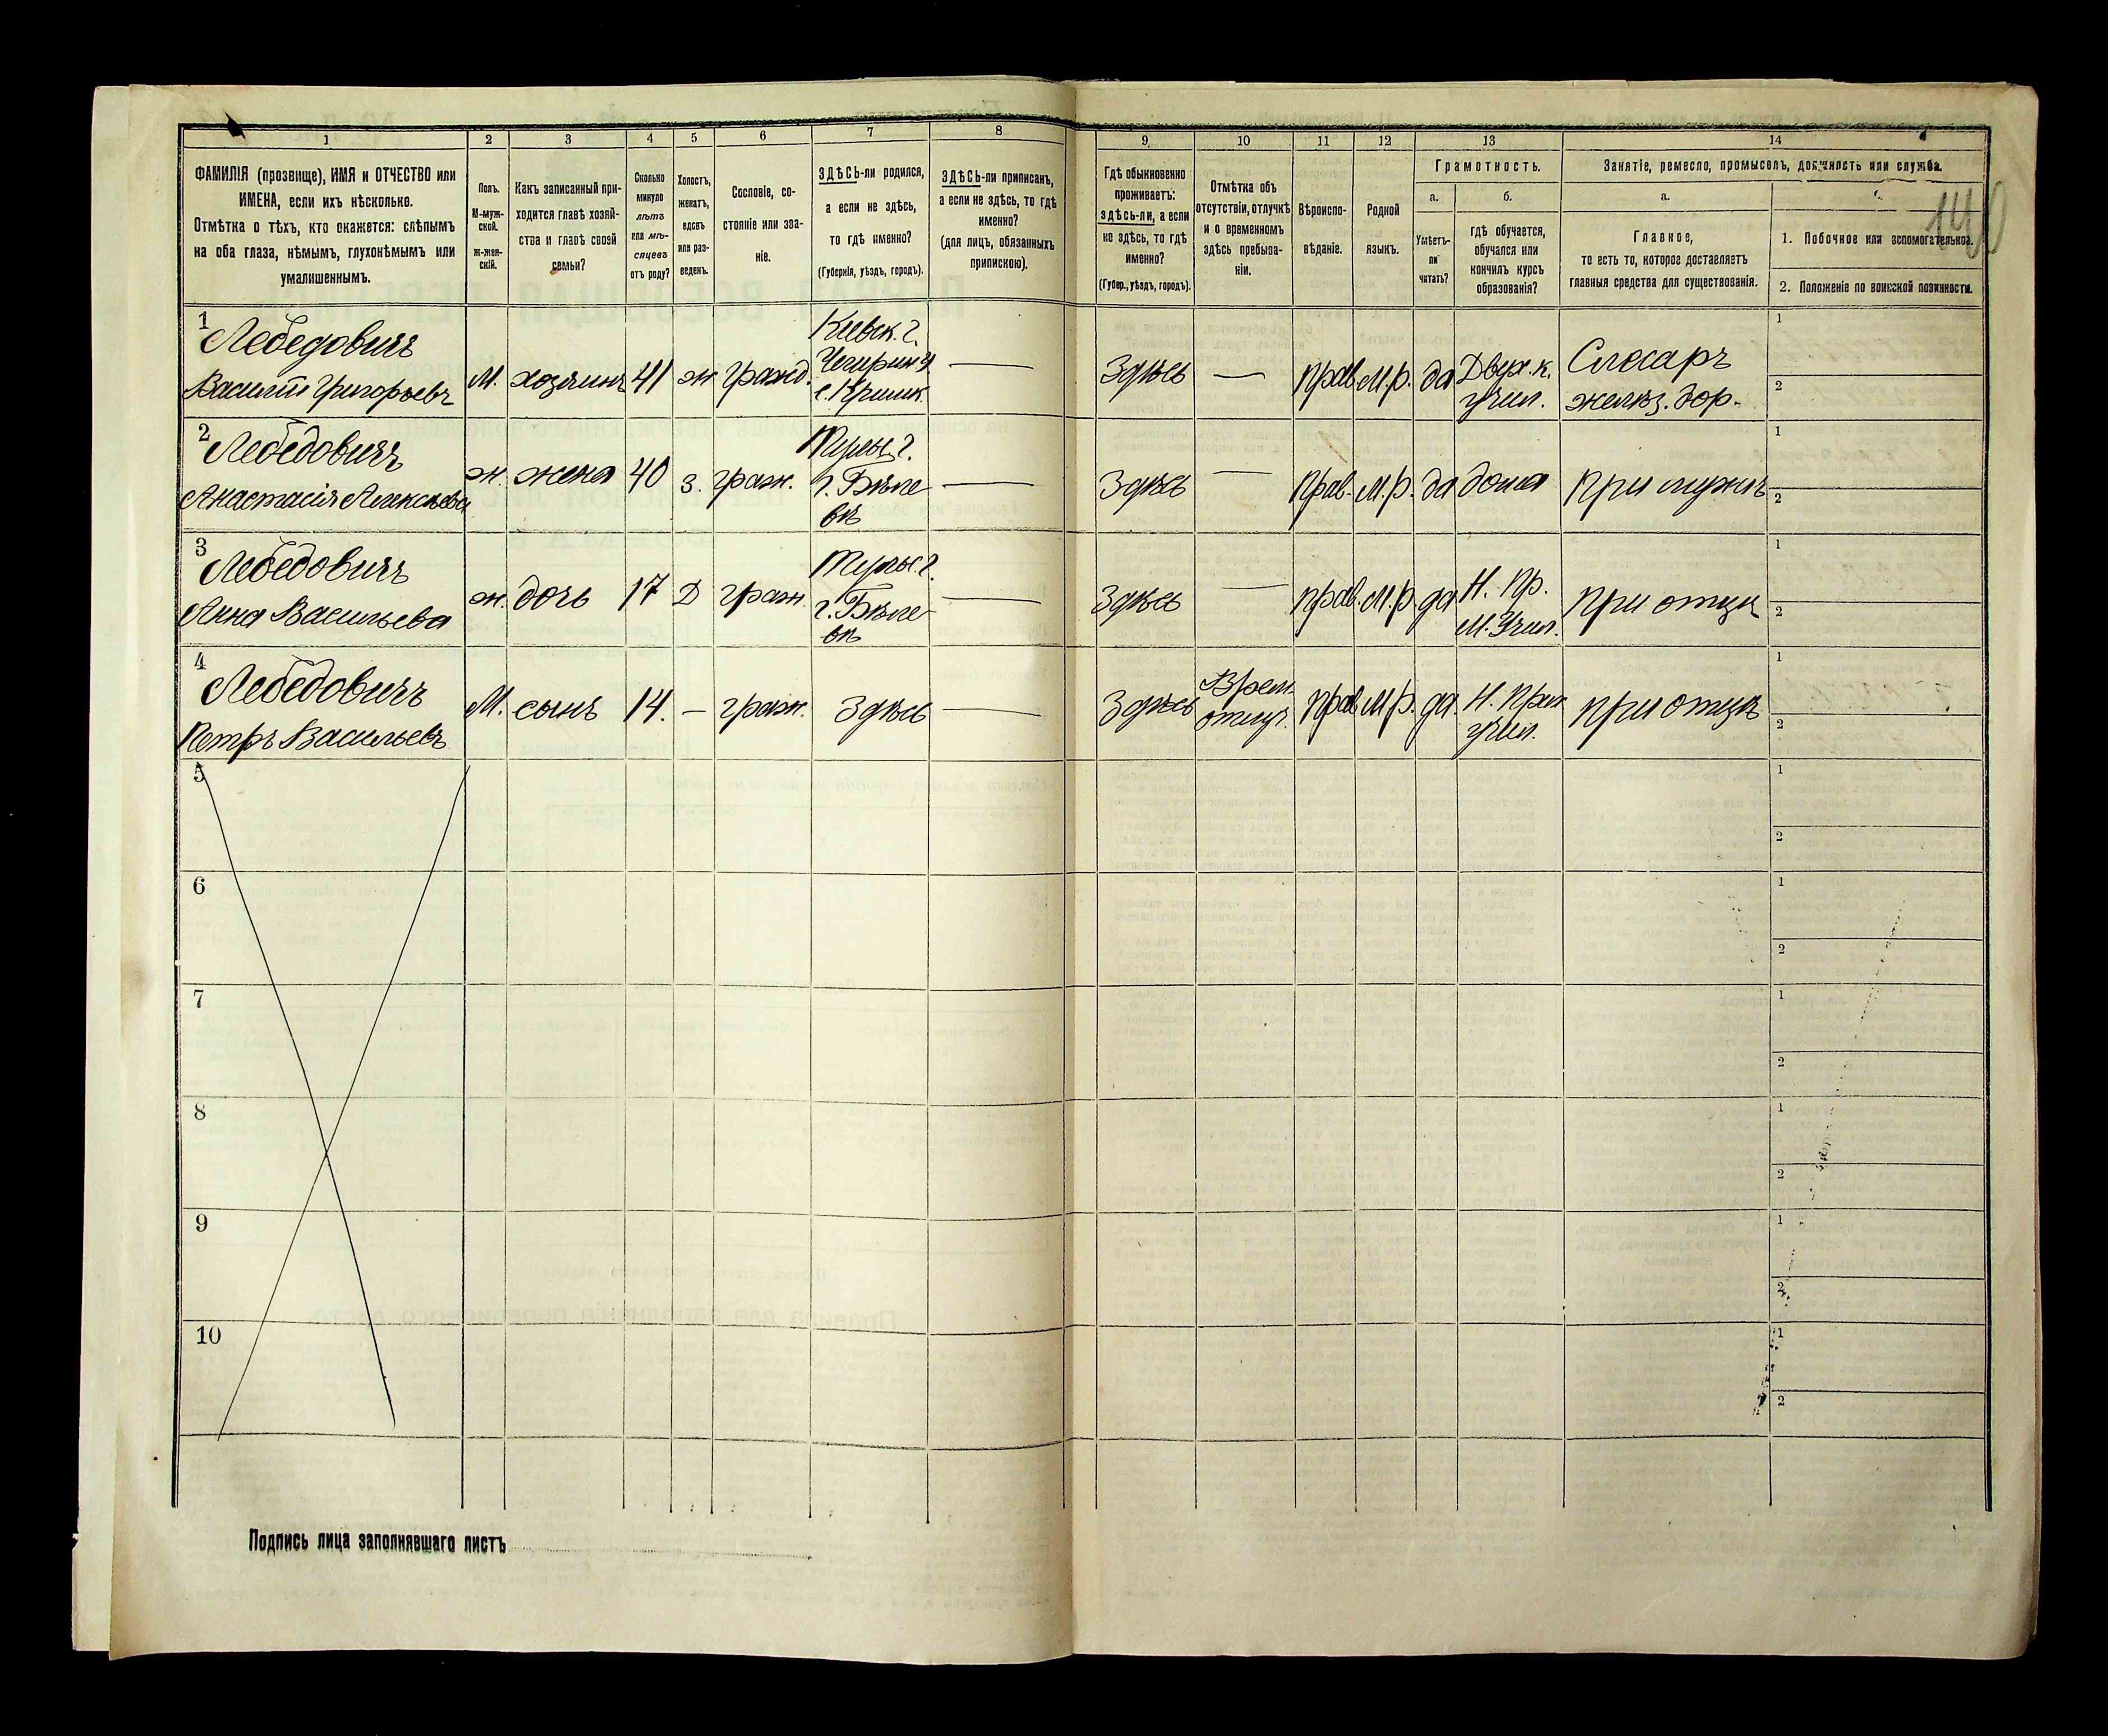 1 2 3 4 5 6 7 8 9 10 11 12 13 14
ФАМИЛІЯ (прозвище), ИМЯ и ОТЧЕСТВО или
ИМЕНА, если ихъ нѣсколько.
Отмѣтка о тѣхъ, кто окажется: слѣпымъ
на оба глаза, нѣмымъ, глухонѣмымъ или
умалишеннымъ.
Полъ.
М-муж-
ской.
Ж-жен-
скій.
Какъ записанный при-
ходится главѣ хозяй-
ства и главѣ своей
семьи?
Сколько
минуло
лѣтъ
или мѣ-
сяцевъ
отъ роду?
Холостъ,
женатъ,
вдовъ
или раз-
веденъ.
Сословіе, со-
стояніе или зва-
ніе.
ЗДѢСЬ-ли родился,
а если не здѣсь,
то гдѣ именно?
(Губернія, уѣздъ, городъ).
ЗДѢСЬ-ли приписанъ,
а если не здѣсь, то гдѣ
именно?
(для лицъ, обязанныхъ
припискою).
Гдѣ обыкновенно
проживаетъ:
здѣсь-ли, а если
не здѣсь, то гдѣ
именно?
(Губер., уѣздъ, городъ).
Отмѣтка объ
отсутствіи, отлучкѣ
и о временномъ
здѣсь пребыва-
ніи.
Вѣроиспо-
вѣданіе.
Родной
языкъ.
Грамотность.
а.
Умѣетъ-
ли
читать?
б.
гдѣ обучается,
обучался или
кончилъ курсъ
образованія?
Занятіе, ремесло, промыселъ, должность или служба.
а.
Главное,
то есть то, которое доставляетъ
главныя средства для существованія.
1. Побочное или вспомогательное.
2. Положеніе по воинской повинности.
140
1
Лебедовичъ
Василій Григорьевъ
М.
хозяинъ
41
ж
гражд.
Кіевск. г.
Чигирин у
Здѣсь
—
прав.
М.р.
да
Двух.к.
учил.
Слесарь
желѣз. дор.
1
2
2
Лебедовичъ
Анастасія Алексѣева
ж.
жена
40
з.
граж.
г. Бѣле
вѣ
—
Здѣсь
—
Прав.
М.р.
да
дома
При мужѣ
1
2
3
Лебедовичъ
Анна Васильева
ж.
дочь
17
Д
граж.
г. Бѣле
вѣ
—
Здѣсь
—
прав.
М.р.
да
Н. Пр.
М. Учил.
при отцѣ
1
2
4
Лебедовичъ
Петръ Васильевъ
М.
сынъ
14.
—
граж.
Здѣсь
—
Здѣсь
Врем.
отлуч.
прав.
М.р.
да
Н. Прих
учил.
при отцѣ
1
2
5
1
2
6
1
2
7
1
2
8
1
2
9
1
2
10
1
2
Подпись лица заполнявшаго листъ